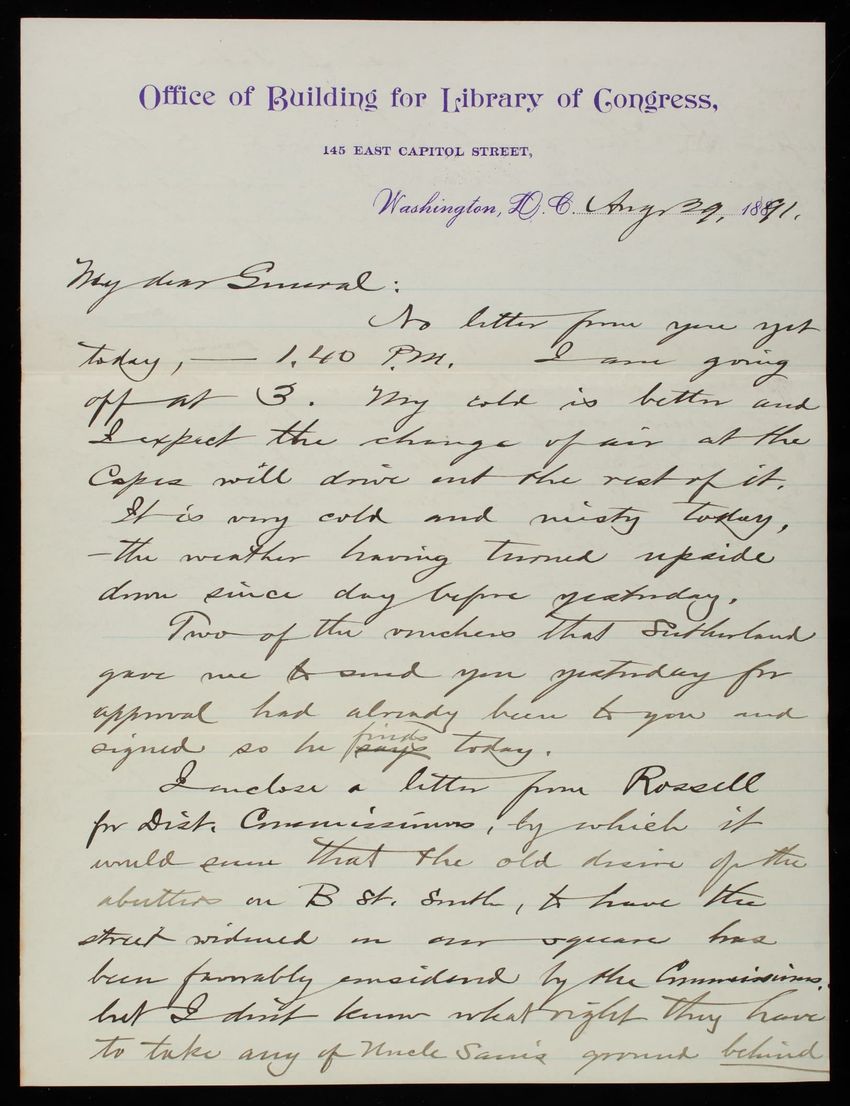 Office of Building for Library of Congress,
145 EAST CAPITOL STREET,
Washington, D. C. Aug 29, 1891.
My dear General:
No letter from you yet
today, — 1.40 P.M. I am going
off at 3. My cold is better and
I expect the change of air at the
Capes will drive out the rest of it.
It is very cold and misty today,
– the weather having turned upside
down since day before yesterday.
Two of the vouchers that Sutherland
gave me to send you yesterday for
approval had already been to you and
signed so he finds says today.
I enclose a letter from Rossell
for Dist. Commissioners, by which it
would seem that the old desire of the
abutters on B St. South, to have the
street widened on our square has
been favorably considered by the Commissioners.
but I don't know what right they have
to take any of Uncle Sam's ground behind